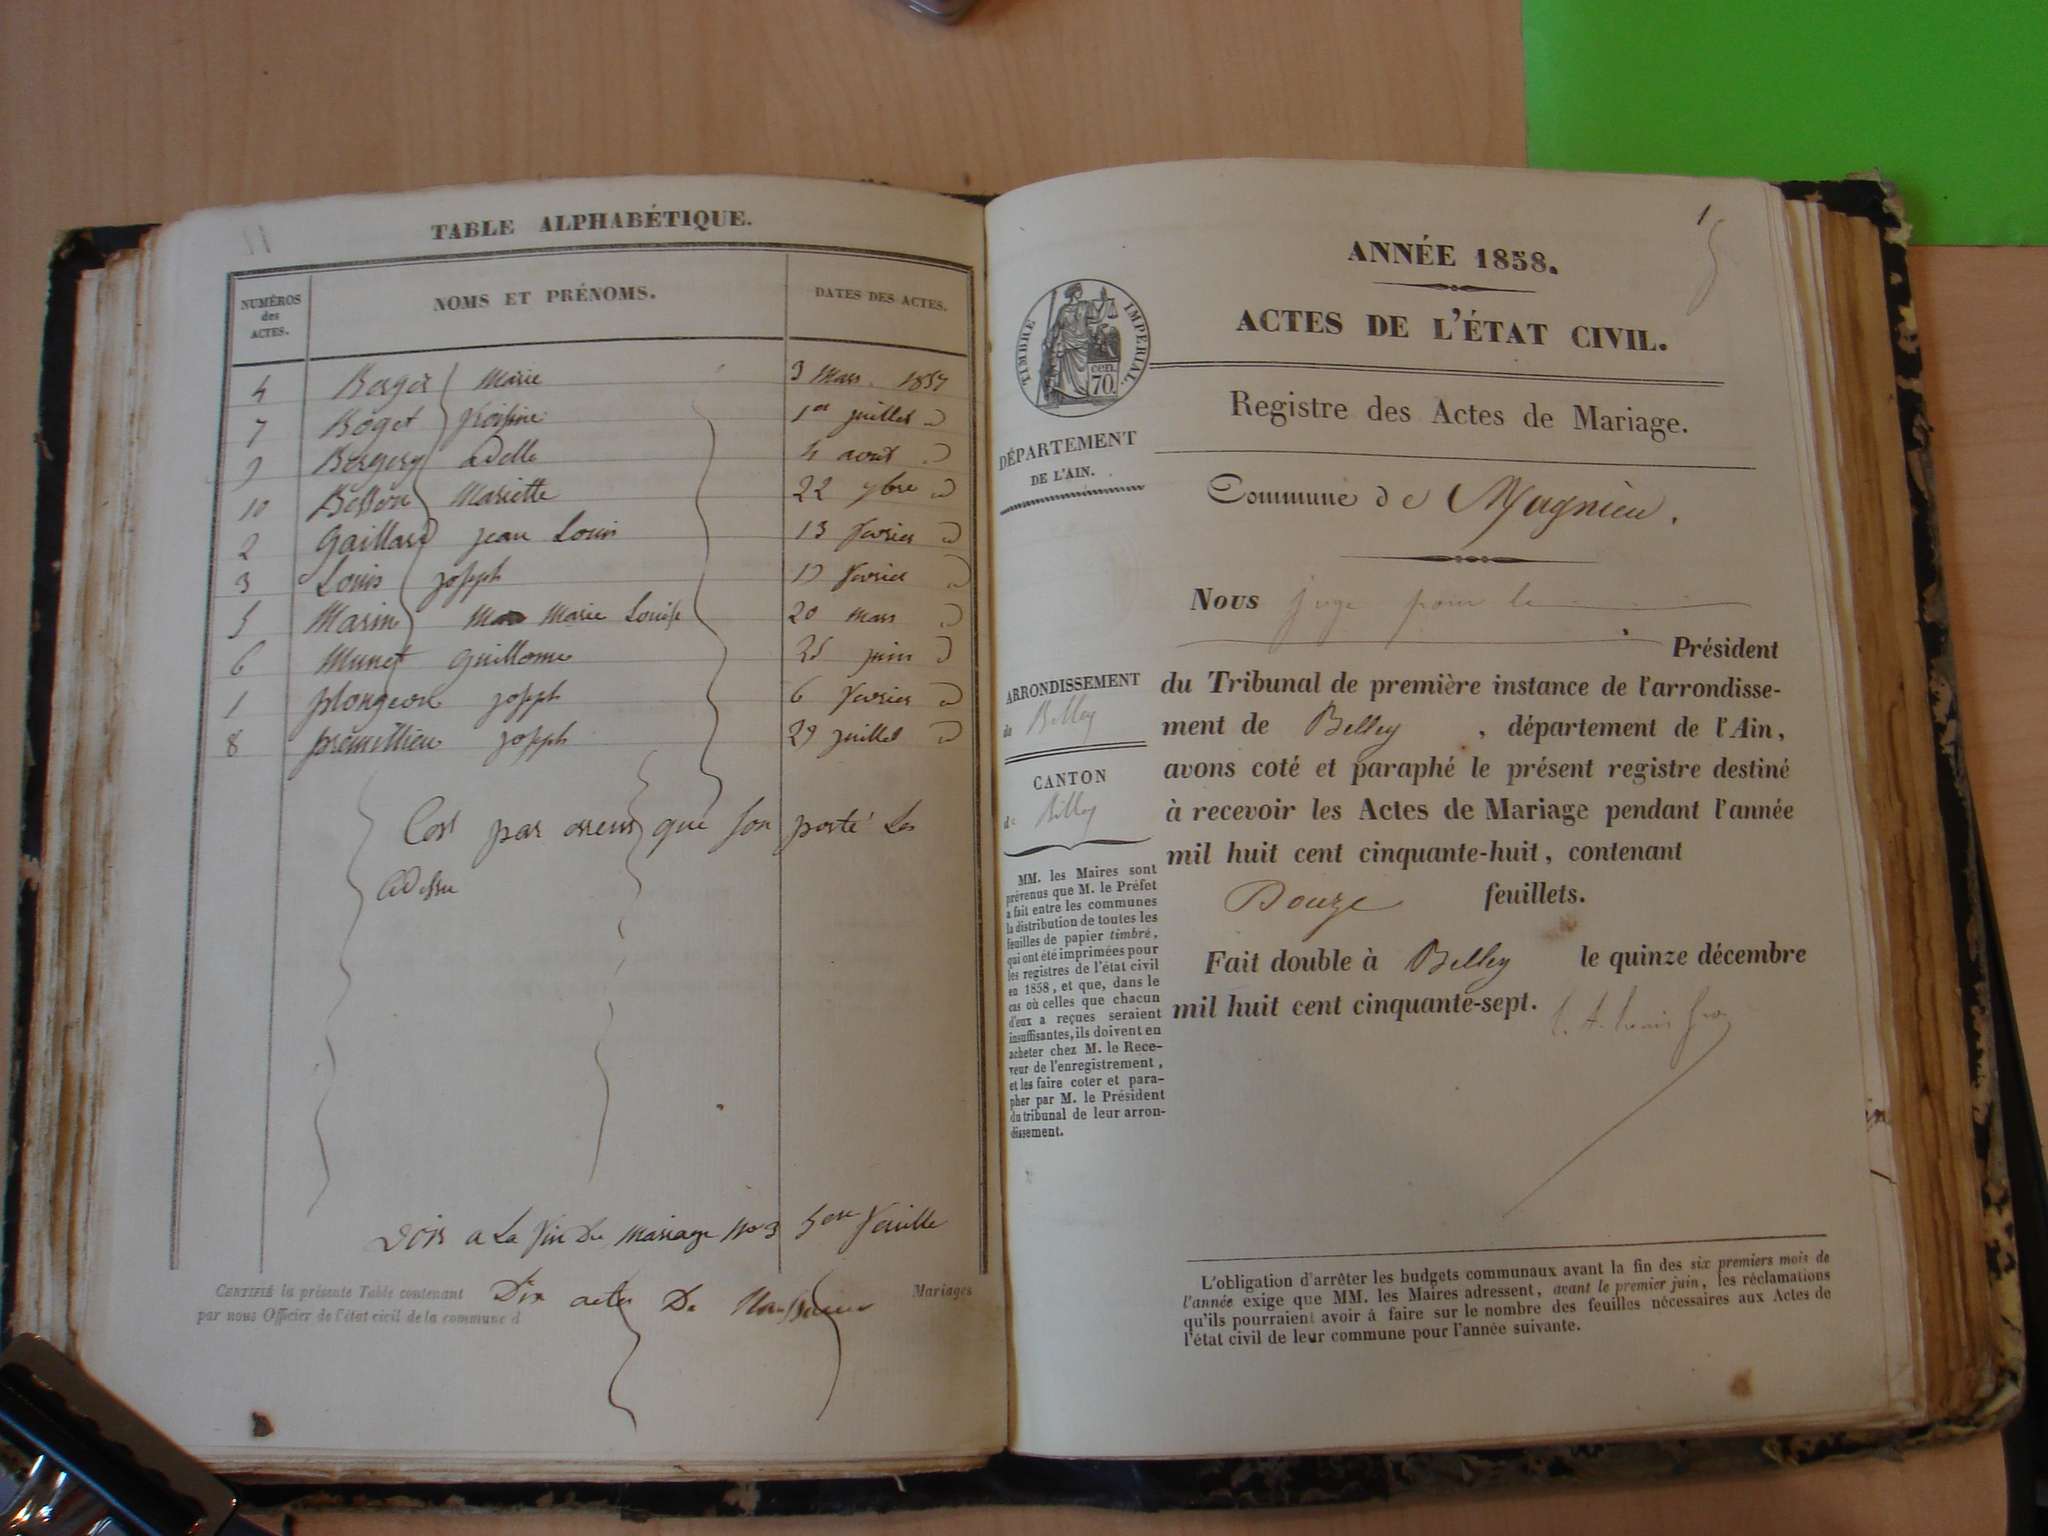 TABLE ALPHABÉTIQUE.
NUMÉROS des ACTES. NOMS ET PRÉNOMS. DATES DES ACTES.
4 Berger Marie 3 Mars 1857
7 Boget 1er juillet
9 Bergery adelle 4 août
10 Besson Mariette 22 7bre
2 Gaillard jean Louis 13 fevrier
3 Louis joseph 17 fevrier
5 Marin Marie Louise 20 mars
6 Munet guillome 25 juin
1 plongeon joseph 6 fevrier
8 premillieu joseph 29 juillet
C'est par erreur que son porté Les
adessu
Vois a La fin Du Mariage No 3 5eme feuille
CERTIFIÉ la présente Table contenant Dix actes De Mariages
par nous Officier de l'état civil de la commune d
1
ANNÉE 1858.
ACTES DE L'ÉTAT CIVIL.
TIMBRE IMPÉRIAL.
cen. 70
Registre des Actes de Mariage.
DÉPARTEMENT
DE L'AIN.
Commune de Magnieu.
Nous juge pour le
Président
ARRONDISSEMENT
de Belley
CANTON
de Belley
MM. les Maires sont
prévenus que M. le Préfet
a fait entre les communes
la distribution de toutes les
feuilles de papier timbré,
qui ont été imprimées pour
les registres de l'état civil
en 1858, et que, dans le
cas où celles que chacun
d'eux a reçues seraient
insuffisantes, ils doivent en
acheter chez M. le Rece-
veur de l'enregistrement,
et les faire coter et para-
pher par M. le Président
du tribunal de leur arron-
dissement.
du Tribunal de première instance de l'arrondisse-
ment de Belley, département de l'Ain,
avons coté et paraphé le présent registre destiné
à recevoir les Actes de Mariage pendant l'année
mil huit cent cinquante-huit, contenant
Douze feuillets.
Fait double à Belley le quinze décembre
mil huit cent cinquante-sept.
L'obligation d'arrêter les budgets communaux avant la fin des six premiers mois de
l'année exige que MM. les Maires adressent, avant le premier juin, les réclamations
qu'ils pourraient avoir à faire sur le nombre des feuilles nécessaires aux Actes de
l'état civil de leur commune pour l'année suivante.